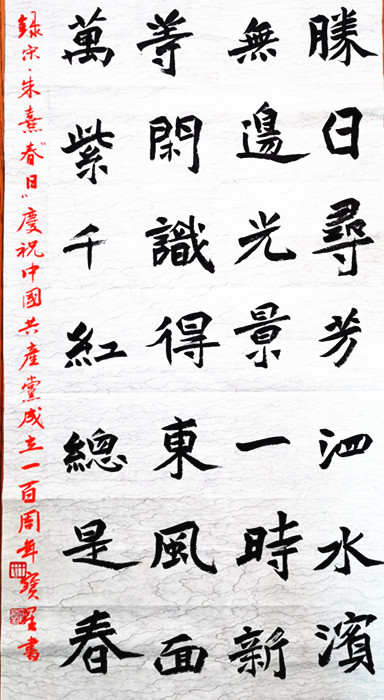 勝日尋芳泗水濱
無邊光景一時新
等閑識得東風面
萬紫千紅總是春
録宋·朱熹"春日"慶祝中國共產黨成立一百周年寶星書